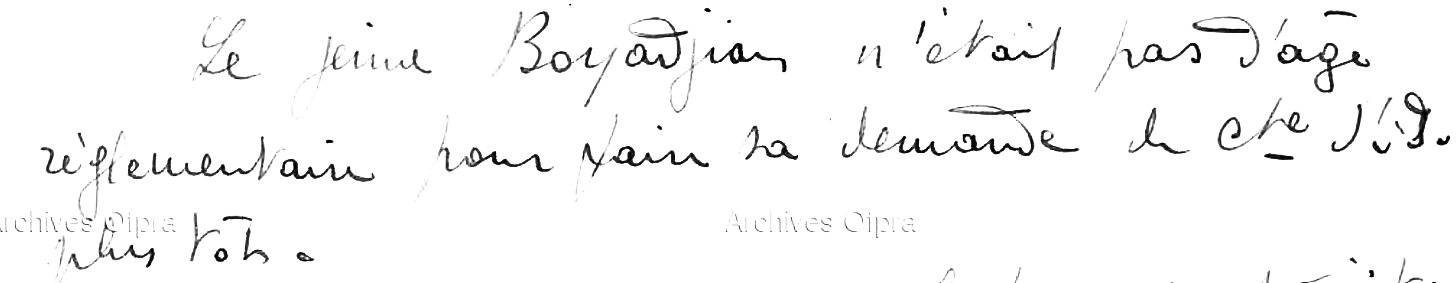 Le jeune Boyadjian n'était pas d'âge
réglementaire pour faire sa demande de Cte d'i.d.
Archives Ofpra Archives Ofpra
plus tôt.